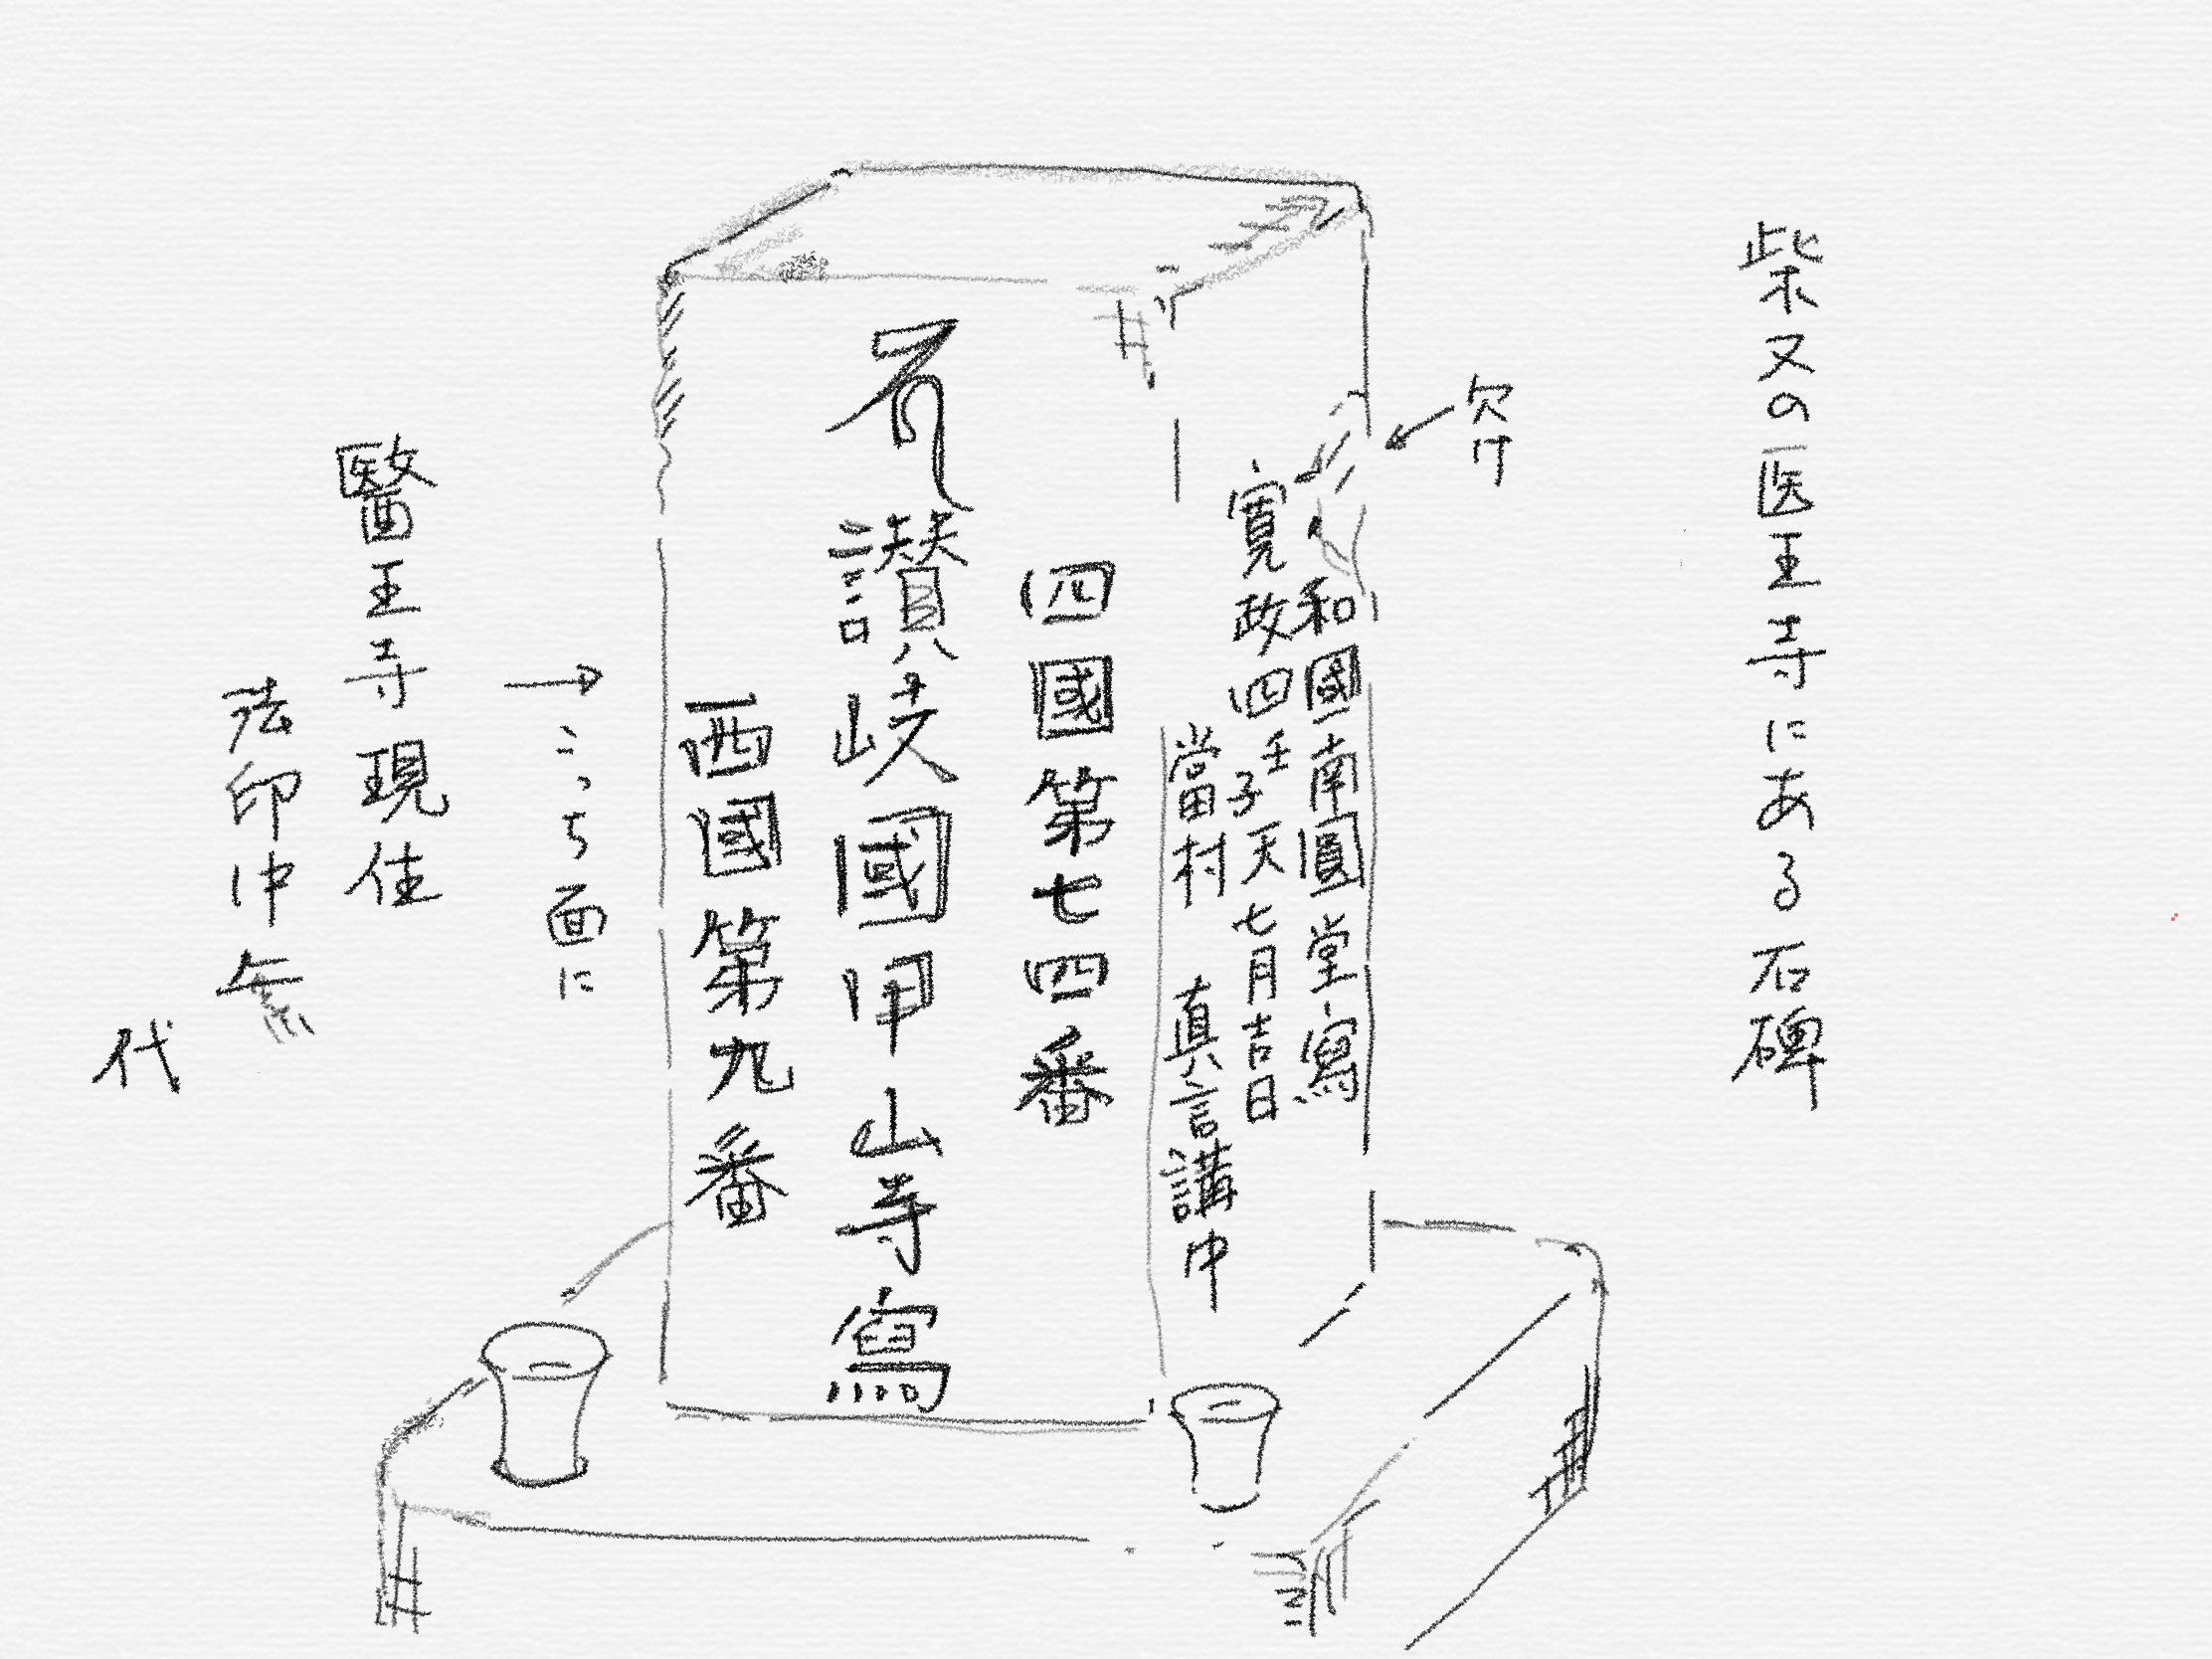 柴又の医王寺にある石碑
欠け
和國南圓堂寫
寛政四壬子天七月吉日
當村 真言講中
四國第七四番
讃岐國甲山寺寫
西國第九番
→こっち面に
醫王寺現住
法印仲
代